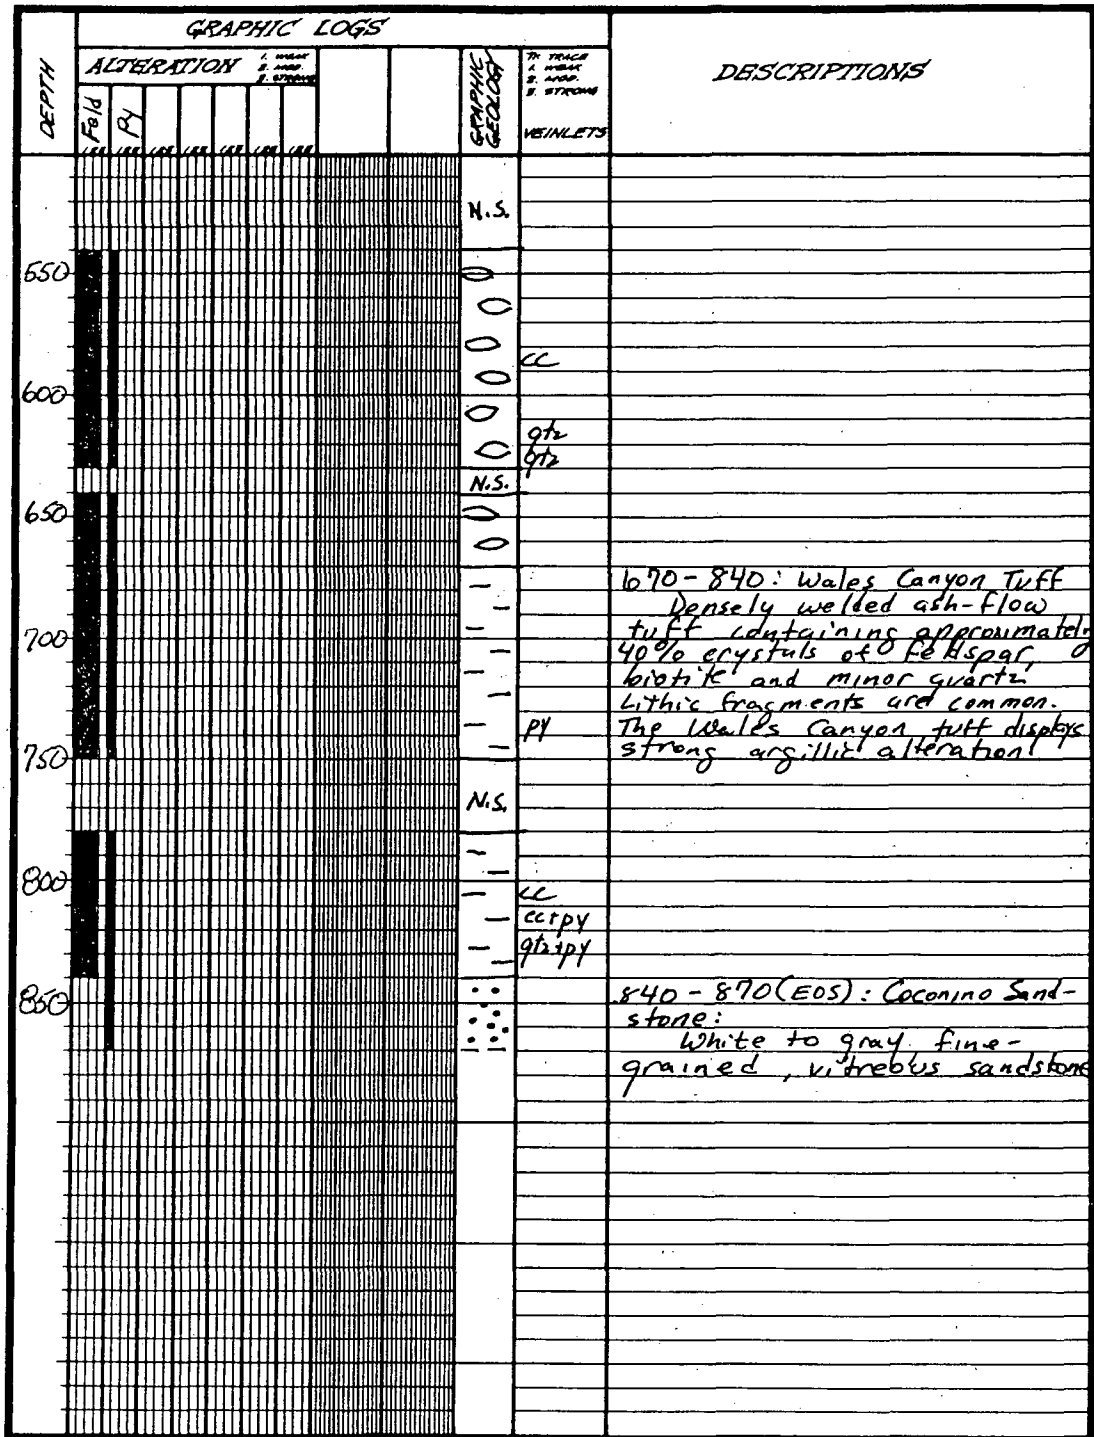 GRAPHIC LOGS
DEPTH
ALTERATION
1. WEAK
2. MOD.
3. STRONG
GRAPHIC GEOLOGY
TR TRACE
1. WEAK
2. MOD.
3. STRONG
VEINLETS
DESCRIPTIONS
Feld
Py
123 123 123 123 123 123 123
N.S.
550
cc
600
qtz
qtz
N.S.
650
670-840: Wales Canyon Tuff
Densely welded ash-flow
tuff containing approximately
700
40% crystals of feldspar,
biotite and minor quartz
Lithic fragments are common.
py
The Wales Canyon tuff displays
strong argillic alteration
750
N.S.
800
cc
cc+py
qtz+py
850
840-870(EOS): Coconino Sand-
stone:
White to gray fine-
grained, vitreous sandstone